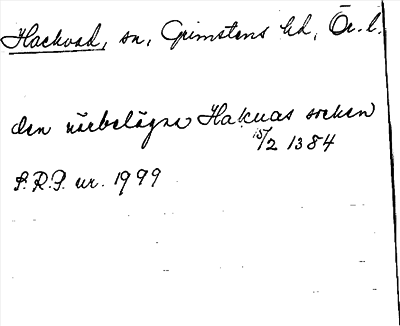 Hackvad, sn, Grimstens hd, Ör. l.
den närbelägne Hakuas socken
15/2 1384
S.R.P. nr. 1999